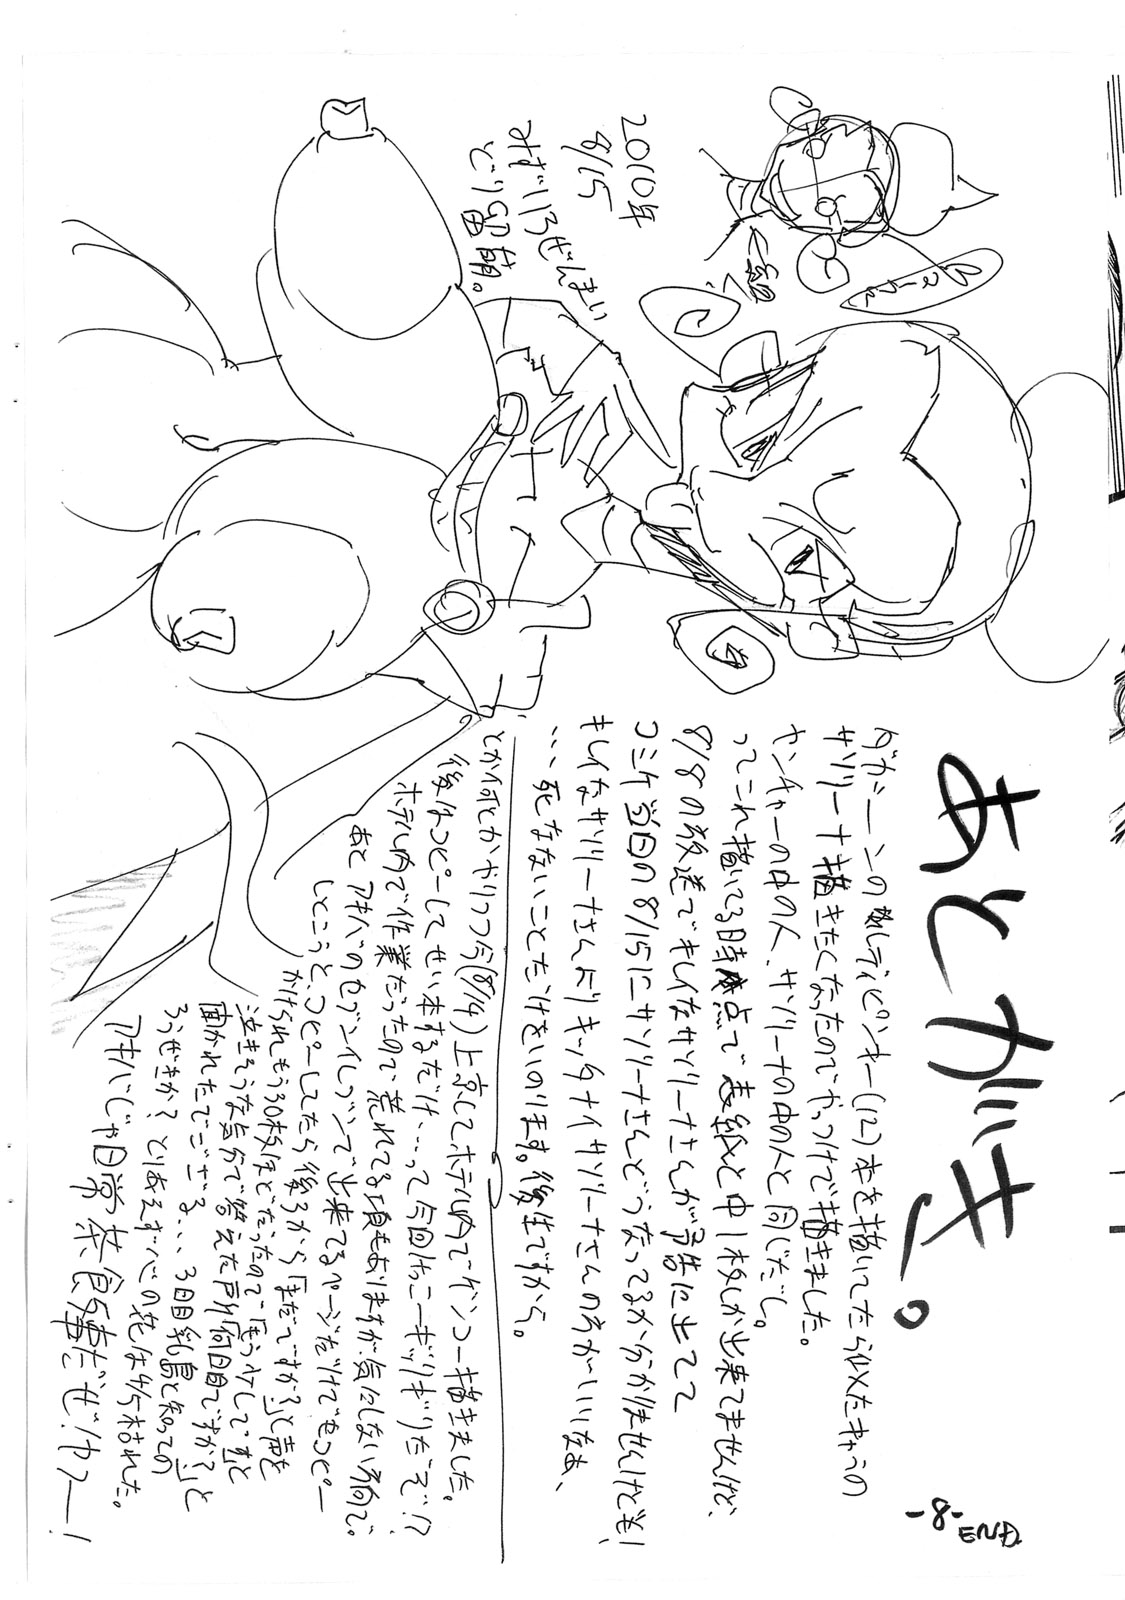 あとがき。
ダカーンの敵レディピンキー(12)本を描いてたら似たキャラの
サソリーナ描きたくなったのでやっつけで描きました。
ヤンチャーの中の人、サソリーナの中の人と同じだし。
ってこれ描いてる時点で表紙と中1枚しか出来てませんけど、
8/8の放送でキレイなサソリーナさんが予告に出てて
コミケ当日の8/15にサソリーナさんどうなってるか分かりませんけども!
キレイなサソリーナさんよりキッタナイサソリーナさんの方がいいなぁ、
…死なないことだけをいのります。後生ですから。
とか何とかやりつつ今(8/14)上京してホテル内でゲンコー描きました。
後はコピーしてせい本するだけ…って今回けっこーギッリギリだぞ!?
ホテル内で作業だったので荒れてる頃もありますが気にしない方向で。
あとアキバのセブンイレブンで出来てるページだけでもコピー
しとこうと、コピーしてたら後ろから「まだですか?」と声を
かけられもう30枚ほどだったので「もう少しです」と
泣きそうな気分で答えた所「何日目ですか?」と
聞かれたでござる、、、3日目乳島と知っての
ろうぜきか?とりあえず心の花は枯れた。
アキバじゃ日常茶飯事だぜ!ヤフー!
2010年
8/15
みずいろぜんまい
どり留萌。
-8-
END